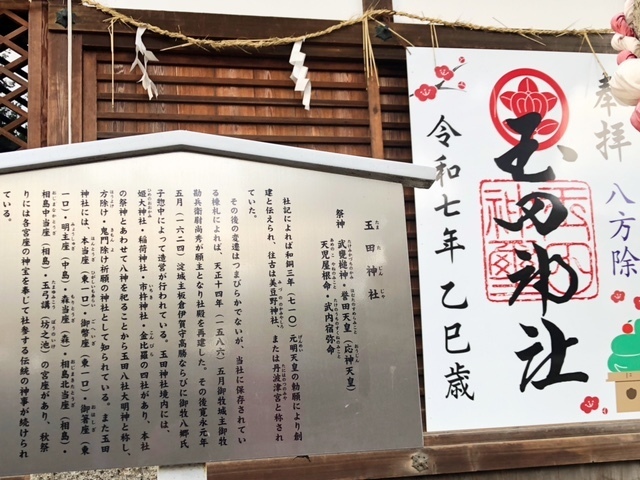 玉田神社
祭神 武甕槌神・誉田天皇（応神天皇）
天児屋根命・武内宿弥命
社記によれば和銅三年（七一〇）元明天皇の勅願により創
建と伝えられ、往古は美豆野神社、または丹波津宮と称され
ていた。
その後の変遷はつまびらかでないが、当社に保存されてい
る棟札によれば、天正十四年（一五八六）五月御牧城主御牧
勘兵衛尉尚秀が願主となり社殿を再建した。その後寛永元年
五月（一六二四）淀城主板倉伊賀守高勝ならびに御牧八郷氏
子惣中によって造営が行われている。玉田神社境内には、
姫大神社・稲荷神社・市杵神社・金比羅の四社があり、本社
の祭神とあわせて八神を祀ることから玉田八社大明神と称し、
方除け・鬼門除け祈願の神社として知られている。また玉田
神社には、本当座（東一口）・御幣座（東一口）・御箸座（東
一口）・明主座（中島）・森当座（森）・相島北当座（相島）・
相島中当座（相島）・玉弓講（坊之池）の宮座があり、秋祭
りには各宮座の神宝を奉じて社参する伝統の神事が続けられ
ている。
奉拝 八方除
玉田神社
令和七年 乙巳歳